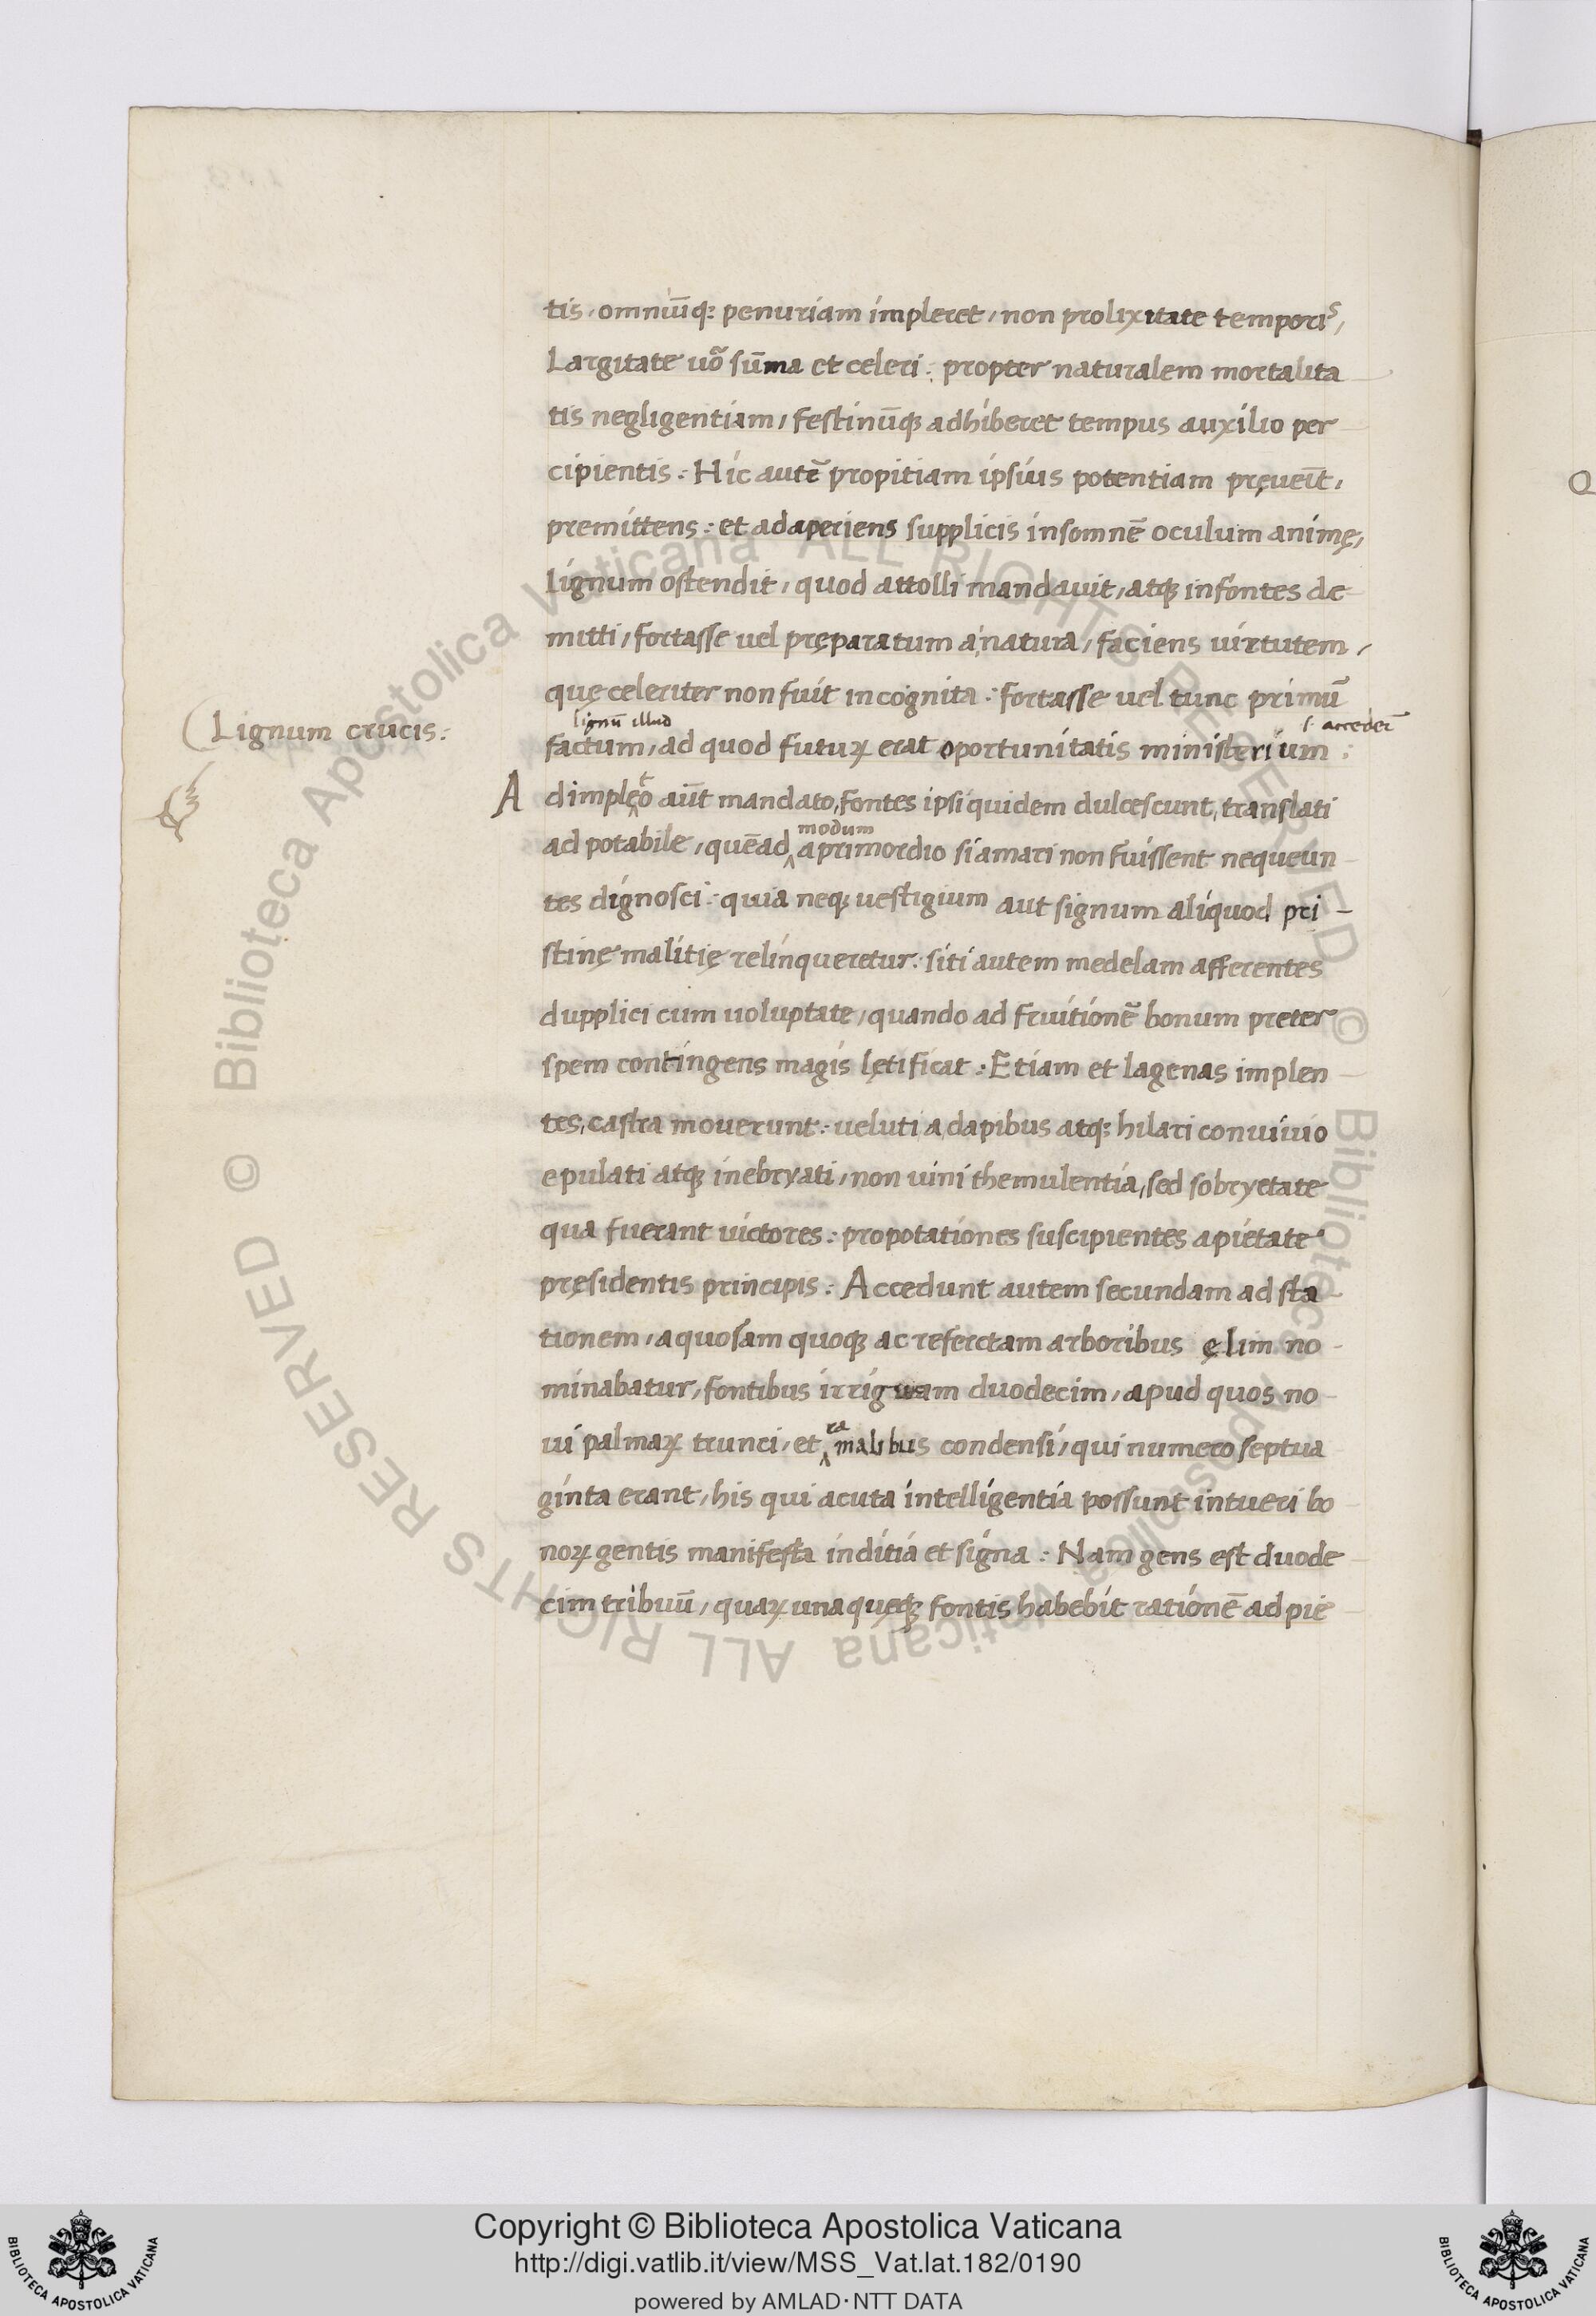 tis, omniūq; penuriam impleret, non prolixitate temporis,
Largitate uõ sūma et celeri: propter naturalem mortalita
tis negligentiam, festinūq; adhiberet tempus auxilio per
cipientis: Hic autē propitiam ipsius potentiam pręueīt,
premittens: et adaperiens supplicis insomnē oculum animę,
lignum ostendit, quod attolli mandauit, atq; infontes de
mitti, fortasse uel pręparatum a natura, faciens uirtutem,
quę celeriter non fuit incognita: fortasse uel tunc primū
lignū illud
s. accederet
Lignum crucis:
factum, ad quod futuꝝ erat oportunitatis ministerium:
Adimplęto aūt mandato, fontes ipsi quidem dulcescunt, translati
modum
ad potabile, quēad aprimordio si amari non fuissent nequeun
tes dignosci: quia neq; uestigium aut signum aliquod pri-
stinę malitię relinqueretur: siti autem medelam afferentes
dupplici cum uoluptate, quando ad fruitionē bonum preter
spem contingens magis lętificat: Etiam et lagenas implen
tes, castra mouerunt: ueluti a dapibus atq; hilari conuiuio
epulati atq; inebryati, non uini themulentia, sed sobryetate
qua fuerant uictores: propotationes suscipientes apietate
pręsidentis principis: Accedunt autem secundam ad sta
tionem, aquosam quoq; ac referctam arboribus ęlim no-
minabatur, fontibus irriguam duodecim, apud quos no
ra
ui palmaꝝ trunci, et malibus condensi, qui numero septua
ginta erant, his qui acuta intelligentia possunt intueri bo
noꝝ gentis manifesta inditia et signa: Nam gens est duode
cim tribuū, quaꝝ unaquęq; fontis habebit rationē ad pie
© Biblioteca Apostolica Vaticana ALL RIGHTS RESERVED © Biblioteca Apostolica Vaticana ALL RIGHTS RESERVED
BIBLIOTECA APOSTOLICA VATICANA
Copyright © Biblioteca Apostolica Vaticana
http://digi.vatlib.it/view/MSS_Vat.lat.182/0190
powered by AMLAD·NTT DATA
BIBLIOTECA APOSTOLICA VATICANA